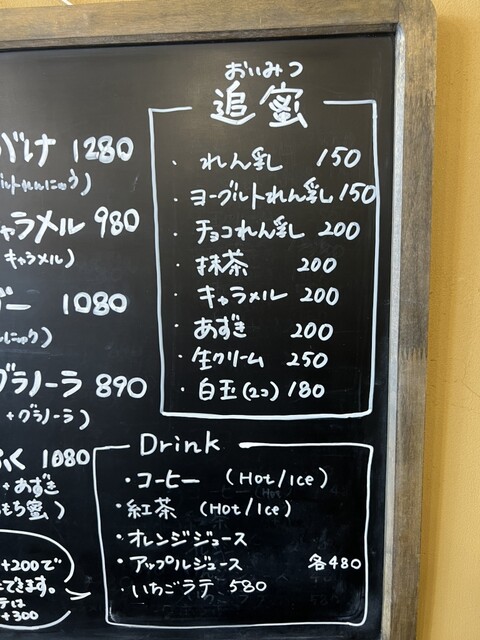 がけ 1280
ルトれんにゅう)
キャラメル 980
キャラメル)
ー 1080
んにゅう)
グラノーラ 890
+グラノーラ)
ふく 1080
+あずき
もち蜜)
+200で
できます。
テは
+300
おいみつ
追蜜
・れん乳 150
・ヨーグルトれん乳 150
・チョコれん乳 200
・抹茶 200
・キャラメル 200
・あずき 200
・生クリーム 250
・白玉(2コ) 180
Drink
・コーヒー (Hot/Ice)
・紅茶 (Hot/Ice)
・オレンジジュース
・アップルジュース 各480
・いちごラテ 580